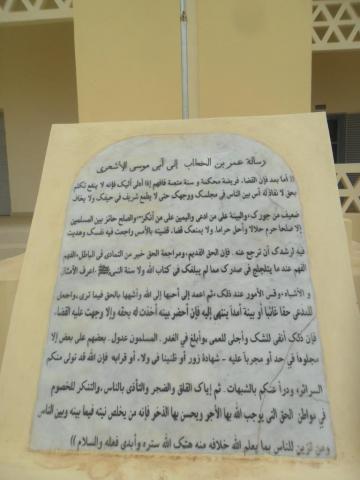 رسالة عمر بن الخطاب إلى أبي موسى الأشعري
(( أما بعد فإن القضاء فريضة محكمة و سنة متبعة فافهم إذا أدلي إليك فإنه لا ينفع تكلم
بحق لا نفاذ له آس بين الناس في مجلسك ووجهك حتى لا يطمع شريف في حيفك ولا يخاف
ضعيف من جورك - والبينة على من ادعى واليمين على من أنكر - والصلح جائز بين المسلمين
إلا صلحا حرم حلالا وأحل حراما. ولا يمنعك قضاء قضيته بالأمس راجعت فيه نفسك وهديت
فيه لرشدك أن ترجع عنه. فإن الحق القديم، ومراجعة الحق خير من التمادي في الباطل - الفهم
الفهم عند ما يتلجلج في صدرك مما لم يبلغك في كتاب الله ولا سنة النبي ﷺ - اعرف الأمثال
و الأشباه - وقس الأمور عند ذلك - ثم اعمد إلى أحبها إلى الله وأشبهها بالحق فيما ترى - واجعل
للمدعي حقا غائبا أو بينة أمدا ينتهي إليه فإن أحضر بينه أخذت له بحقه وإلا وجهت عليه القضاء
فإن ذلك أنفى للشك وأجلى للعمى - وأبلغ في الغدر. المسلمون عدول. بعضهم على بعض إلا
مجلودا في حد أو مجربا عليه - شهادة زور أو ظنينا في ولاء أو قرابه فإن الله قد تولى منكم
السرائر، ودرأ عنكم بالشبهات. ثم إياك والقلق والضجر والتأذي بالناس، والتنكر للخصوم
في مواطن الحق التي يوجب الله بها الأجر ويحسن بها الذخر فإنه من يخلص نيته فيما بينه وبين الناس
ومن تزين للناس بما يعلم الله خلافه منه هتك الله ستره وأبدى فعله والسلام ))